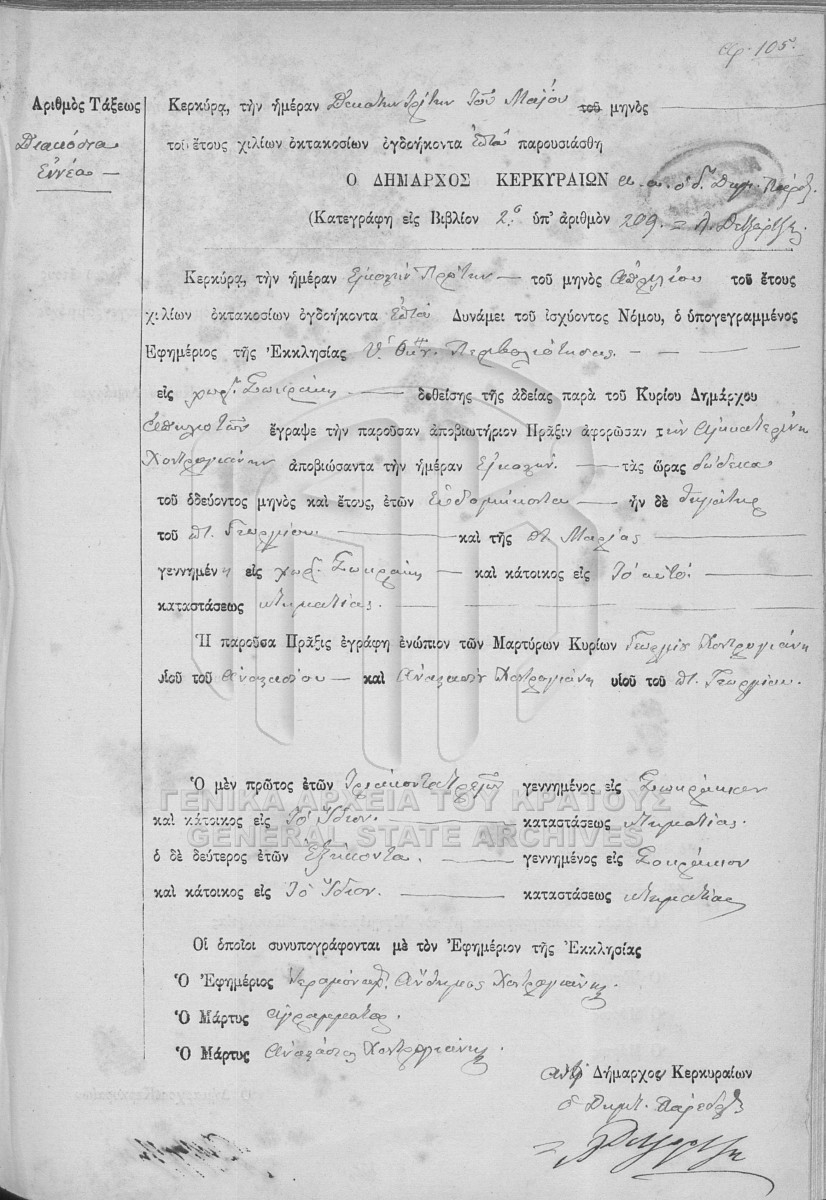 αρ. 105.
Ἀριθμὸς Τάξεως
Διακόσια
Ἐννέα —
Κερκύρᾳ, τὴν ἡμέραν Δεκάτην Τρίτην τοῦ Μαΐου τοῦ μηνὸς
τοῦ ἔτους χιλίων ὀκτακοσίων ὀγδοήκοντα ἑπτὰ παρουσιάσθη
Ο ΔΗΜΑΡΧΟΣ ΚΕΡΚΥΡΑΙΩΝ
(Κατεγράφη εἰς Βιβλίον 2ο ὑπ' ἀριθμὸν 209.
Κερκύρᾳ, τὴν ἡμέραν Εἰκοστὴν Πρώτην — τοῦ μηνὸς Ἀπριλίου τοῦ ἔτους
χιλίων ὀκτακοσίων ὀγδοήκοντα ἑπτὰ Δυνάμει τοῦ ἰσχύοντος Νόμου, ὁ ὑπογεγραμμένος
Ἐφημέριος τῆς Ἐκκλησίας Περβολιώτησας
εἰς χωρ. Σωκράκη — δοθείσης τῆς ἀδείας παρὰ τοῦ Κυρίου Δημάρχου
ἔγραψε τὴν παροῦσαν ἀποβιωτήριον Πρᾶξιν ἀφορῶσαν τὴν Αἰκατερίνη
Χοντρογιάννην ἀποβιώσαντα τὴν ἡμέραν Εἰκοστὴν — τὰς ὥρας δώδεκα
τοῦ ὁδεύοντος μηνὸς καὶ ἔτους, ἐτῶν Ἑβδομήκοντα — ἦν δὲ θυγάτηρ
τοῦ πτ Γεωργίου. — καὶ τῆς πτ Μαρίας
γεννημένη εἰς χωρ. Σωκράκη — καὶ κάτοικος εἰς Τὸ αὐτό.
καταστάσεως κτηματίας.
Ἡ παροῦσα Πρᾶξις ἐγράφη ἐνώπιον τῶν Μαρτύρων Κυρίων Γεωργίου Χοντρογιάνη
υἱοῦ τοῦ Ἀναστασίου — καὶ Ἀναστασίου Χοντρογιάνη υἱοῦ τοῦ πτ. Γεωργίου.
Ὁ μὲν πρῶτος ἐτῶν Τριάκοντα τριῶν γεννημένος εἰς Σωκράκιον
ΓΕΝΙΚΑ ΑΡΧΕΙΑ ΤΟΥ ΚΡΑΤΟΥΣ
καὶ κάτοικος εἰς Τὸ Ἴδιον. — καταστάσεως κτηματίας.
GENERAL STATE ARCHIVES
ὁ δὲ δεύτερος ἐτῶν Ἑξήκοντα. — γεννημένος εἰς Σωκράκιον
καὶ κάτοικος εἰς Τὸ Ἴδιον. — καταστάσεως κτηματίας
Οἱ ὁποῖοι συνυπογράφονται μὲ τὸν Ἐφημέριον τῆς Ἐκκλησίας
Ὁ Ἐφημέριος Ἱερομόναχ. Ἄνθιμος Χοντρογιάνης.
Ὁ Μάρτυς ἀγράμματος.
Ὁ Μάρτυς Ἀναστάσιος Χοντρογιάνης
Δήμαρχος Κερκυραίων
ὁ Δημτ. Πάρεδρος